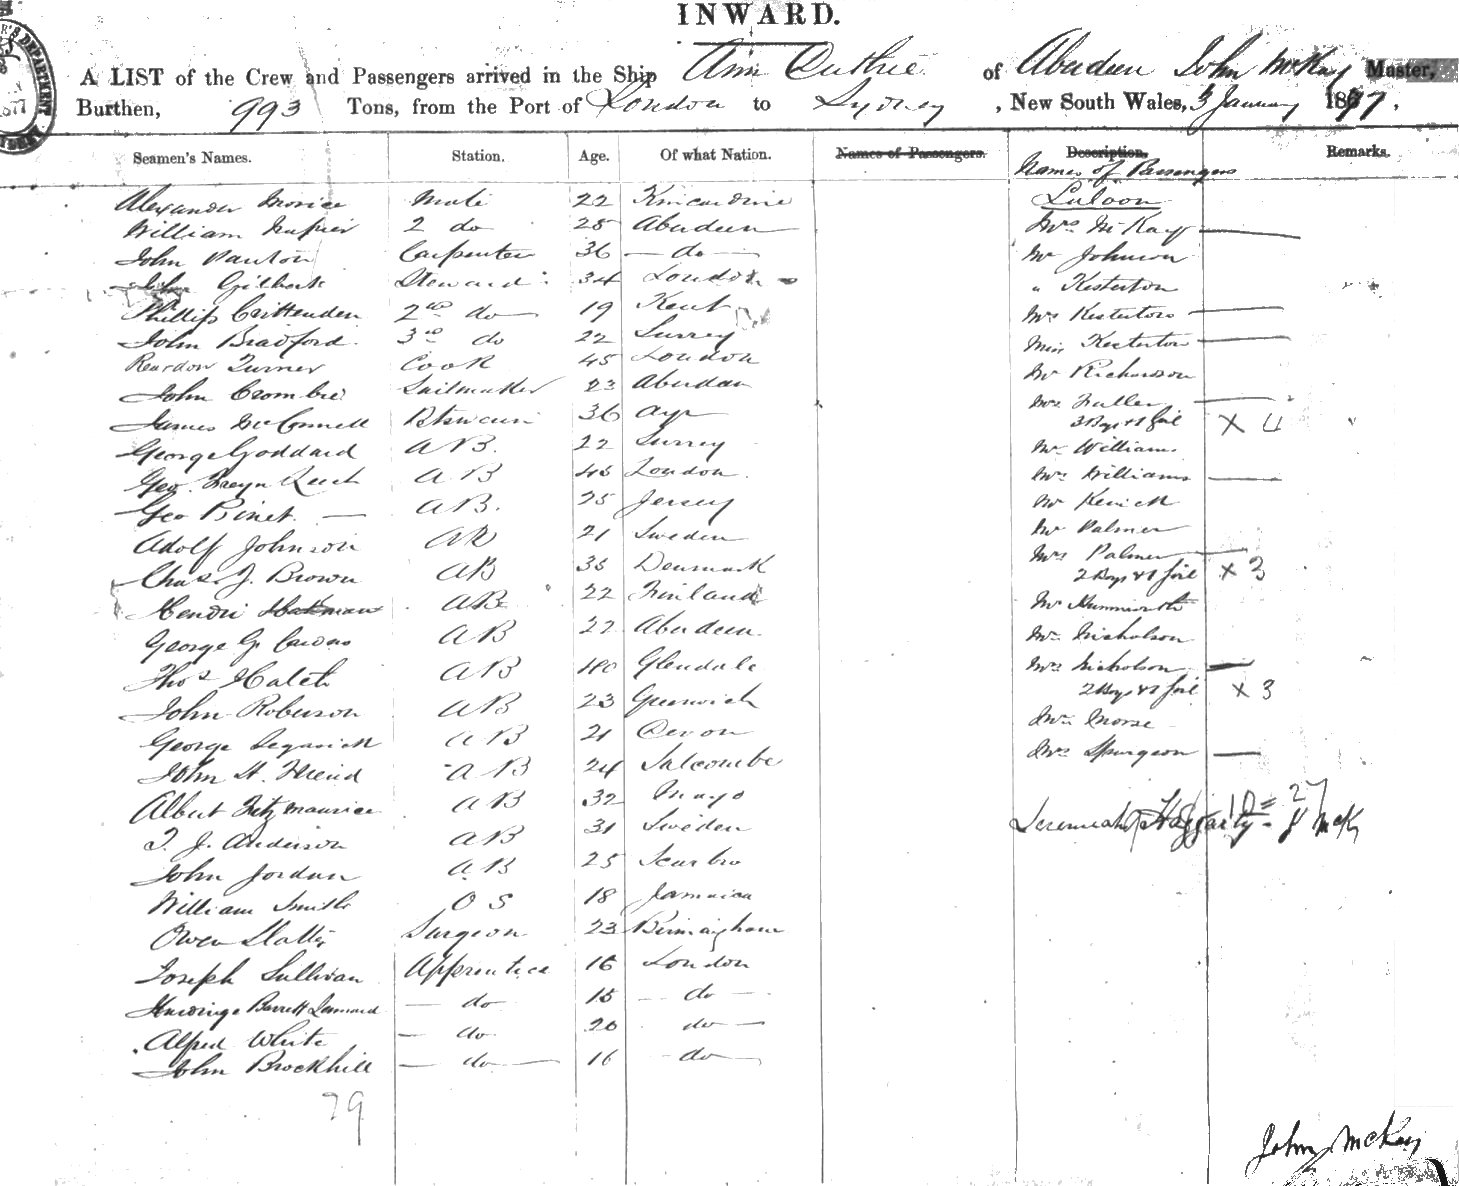 INWARD.
A LIST of the Crew and Passengers arrived in the Ship Ann Duthie of Aberdeen John McKay Master,
Burthen, 993 Tons, from the Port of London to Sydney, New South Wales, 3 January 1877.
Seamen's Names. Station. Age. Of what Nation. Names of Passengers. Description. Remarks.
Names of Passengers
Alexander Morice Mate 22 Kincardine Saloon
William Napier 2 do 25 Aberdeen Mrs McKay
John Panton Carpenter 36 do Mr Johnson
John Gilbert Steward 34 London " Kesterton
Phillip Crittenden 2nd do 19 Kent Mrs Kesterton
John Bradford 3rd do 22 Surrey Miss Kesterton
Reardon Turner Cook 45 London Mr Richardson
John Crombie Sailmaker 23 Aberdeen Mrs Fuller
3 Boys & 1 Girl X 4
James McConnell Btswain 36 Ayr
George Goddard AB. 22 Surrey Mr Williams
Geo. AB London Mrs Williams
Geo Binet AB. 25 Jersey Mr
Adolf Johnson AB 21 Sweden Mr Palmer
Chas. J. Brown AB 35 Denmark Mrs Palmer
2 Boys & 1 Girl X 3
Hendri AB 22 Finland Mr
George G. AB 22 Aberdeen Mr Nicholson
Thos AB 40 Glendale Mrs Nicholson
2 Boys & 1 Girl X 3
John Roberson AB 23 Greenwich
George AB 21 Devon Morse
John H. AB 24 Salcombe Mrs Spurgeon
Albert Fitzmaurice AB 32 Mayo
T. J. Anderson AB 31 Sweden Jeremiah Haggarty
John Jordan AB 25 Scarbro
William Smith O S 18 Jamaica
Owen Slatter Surgeon 23 Birmingham
Joseph Sullivan Apprentice 16 London
Barrett Lennard do 15 do
Alfred White do 20 do
John Brockhill do 16 do
29
John McKay